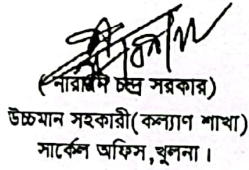 ( নারায়ন চন্দ্র সরকার)
উচ্চমান সহকারী(কল্যাণ শাখা)
সার্কেল অফিস,খুলনা।